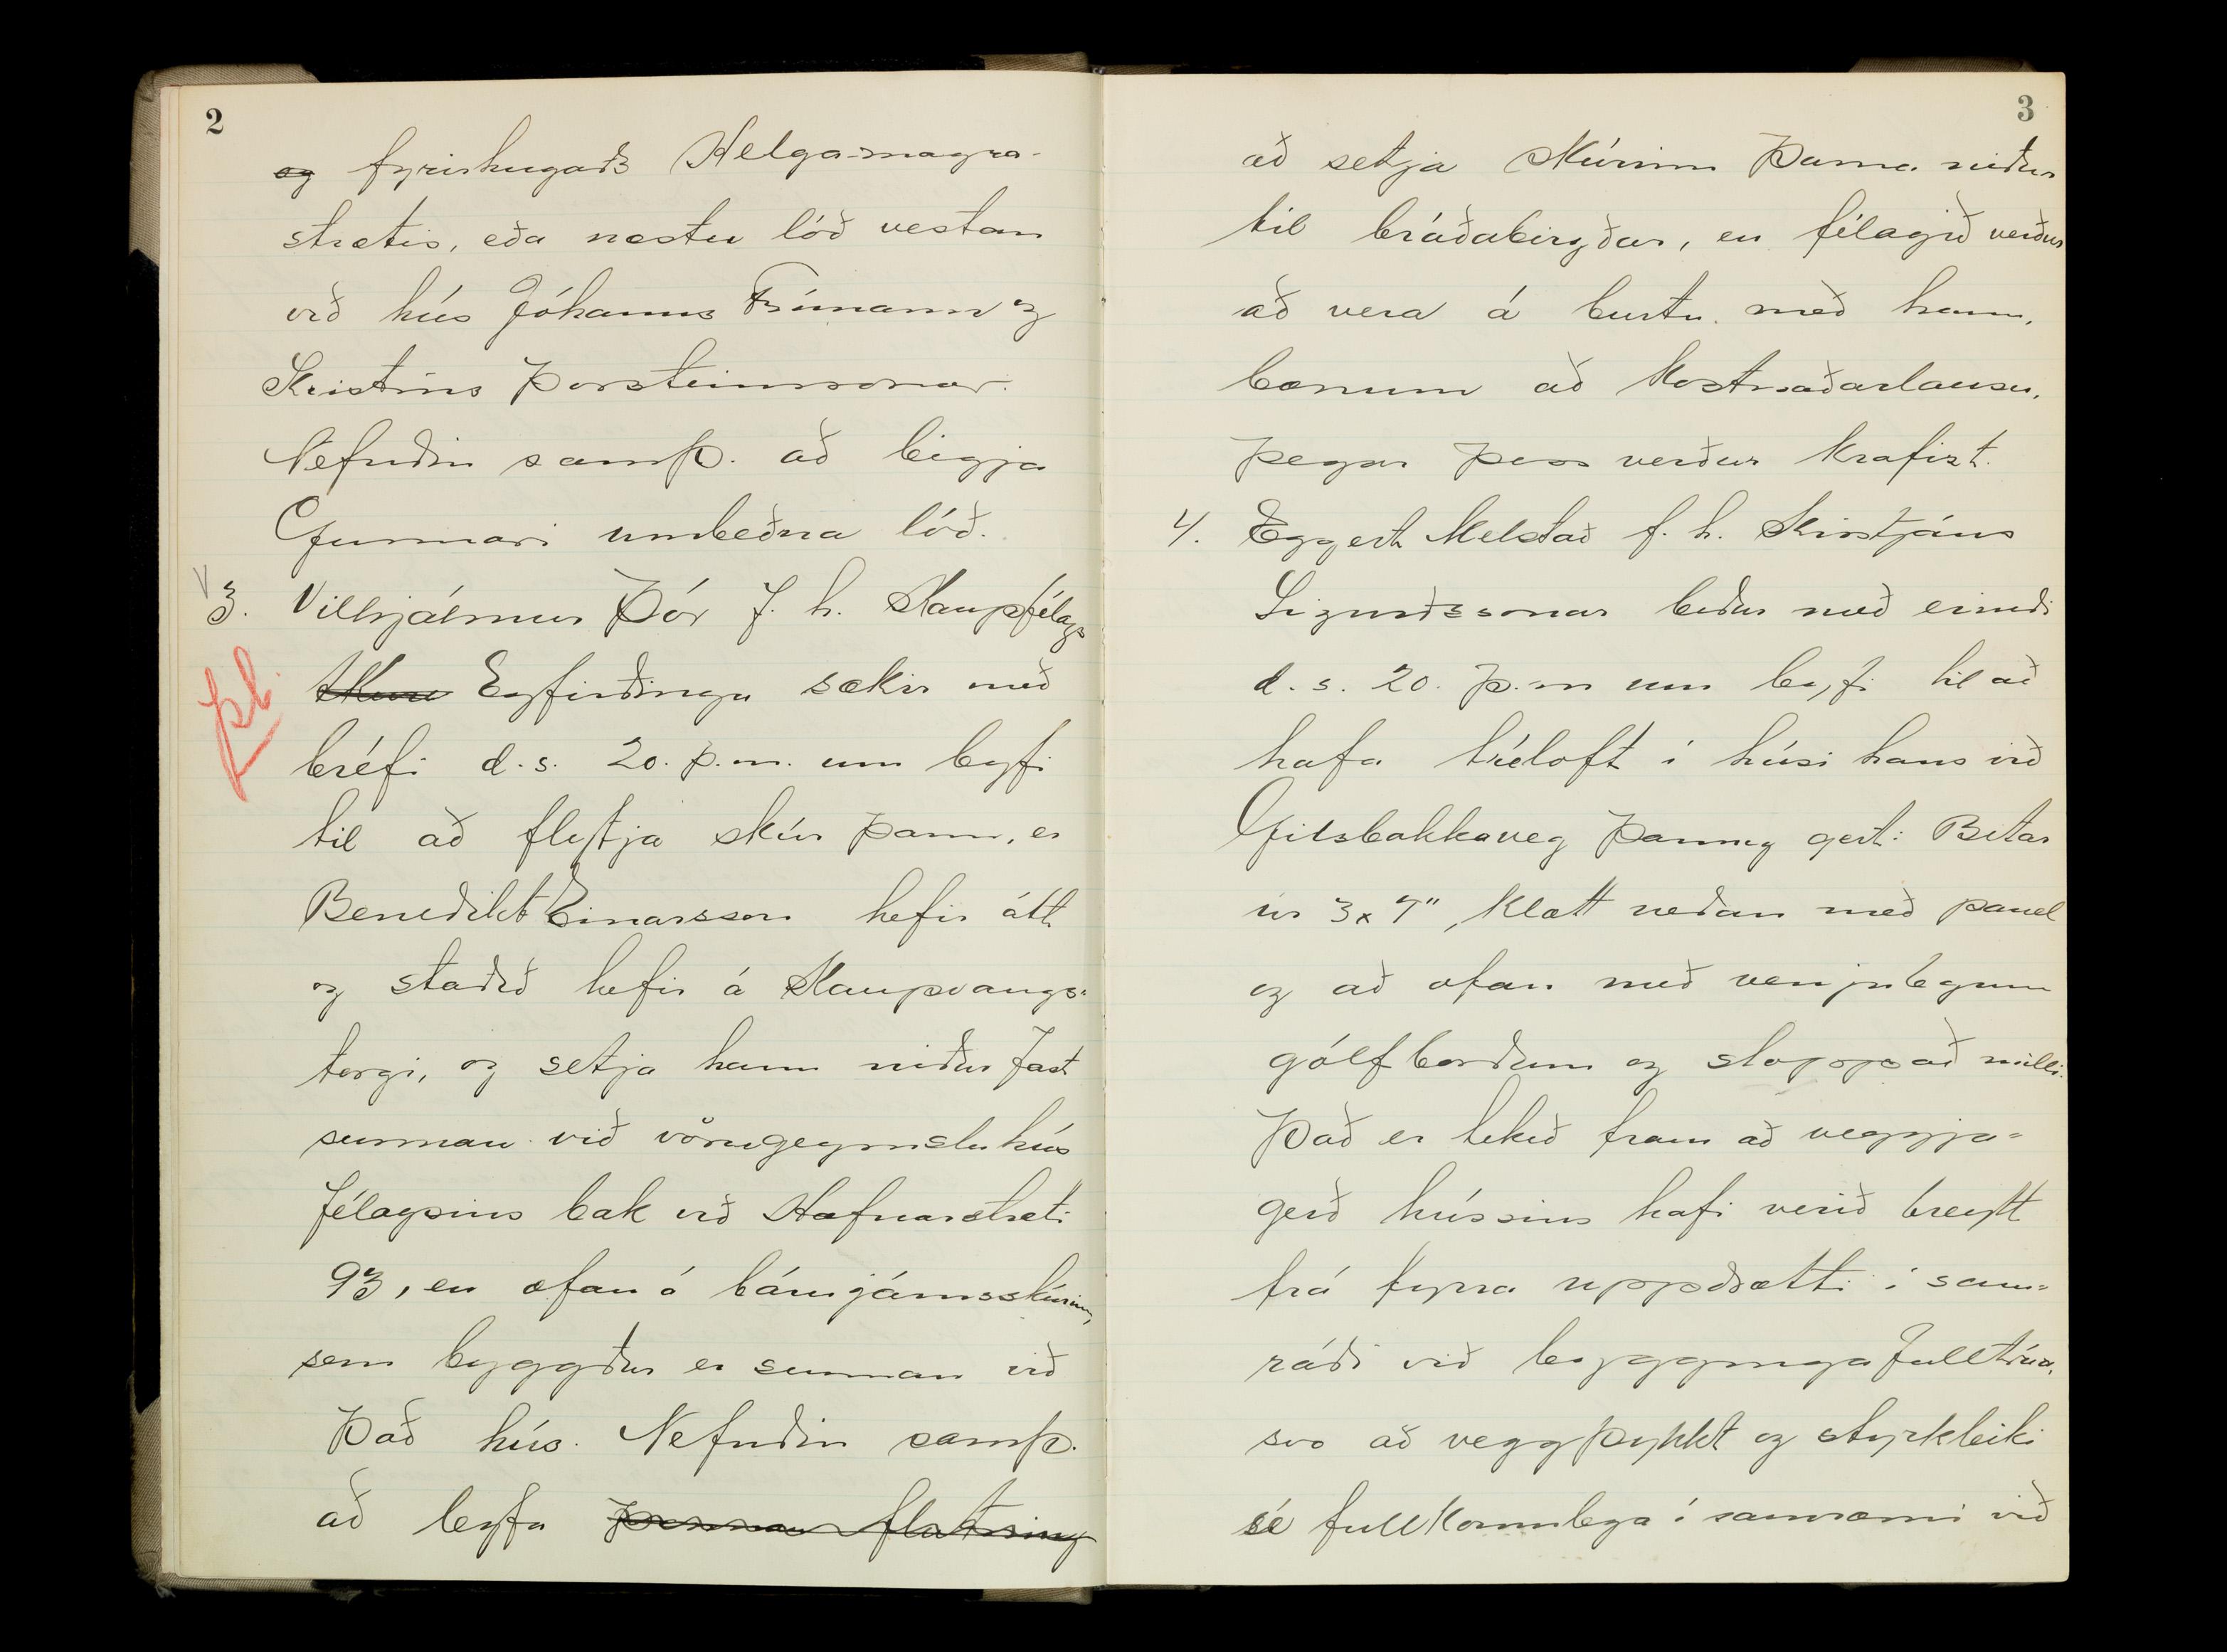 2
og fyrirhugaðs Helga-magra-
strætis, eða næstu lóð vestan
við hús Jóhanns Frímann og
Kristins Þorsteinssonar.
Nefndin samþ. að leigja
Gunnari umbeðna lóð.
V
3. Vilhjálmur Þór f. h. Kaupfélags
Eyfirðinga sækir með
þb.
bréfi d.s. 20. þ.m. um leyfi
til að flytja skúr þann, er
Benedikt Einarsson hefir átt
og staðið hefir á Kaupvangs-
torgi, og setja hann niður fast
sunnan við vörugeymsluhús
félagsins bak við Hafnarstræti
93, en ofan á bárujárnsskúrinn,
sem byggður er sunnan við
það hús. Nefndin samþ.
að leyfa þennan flutning
3
að setja skúrinn þarna niður
til bráðabirgðar, en félagið verður
að vera á burtu með hann,
bænum að kostnaðarlausu,
þegar þess verður krafizt.
4. Eggert Melstað f. h. Kristjáns
Sigurðssonar biður með erindi
d.s. 20. þ.m um leyfi til að
hafa tréloft í húsi hans við
Gilsbakkaveg þannig gert: Bitar
úr 3x7", klætt neðan með panel
og að ofan með venjulegum
gólfborðum og stoppað milli.
Það er tekið fram að veggja-
gerð hússins hafi verið breytt
frá fyrra uppdrætti í sam-
ráði við byggingafulltrúa,
svo að veggþykkt og styrkleiki
sé fullkomnlega í samræmi við